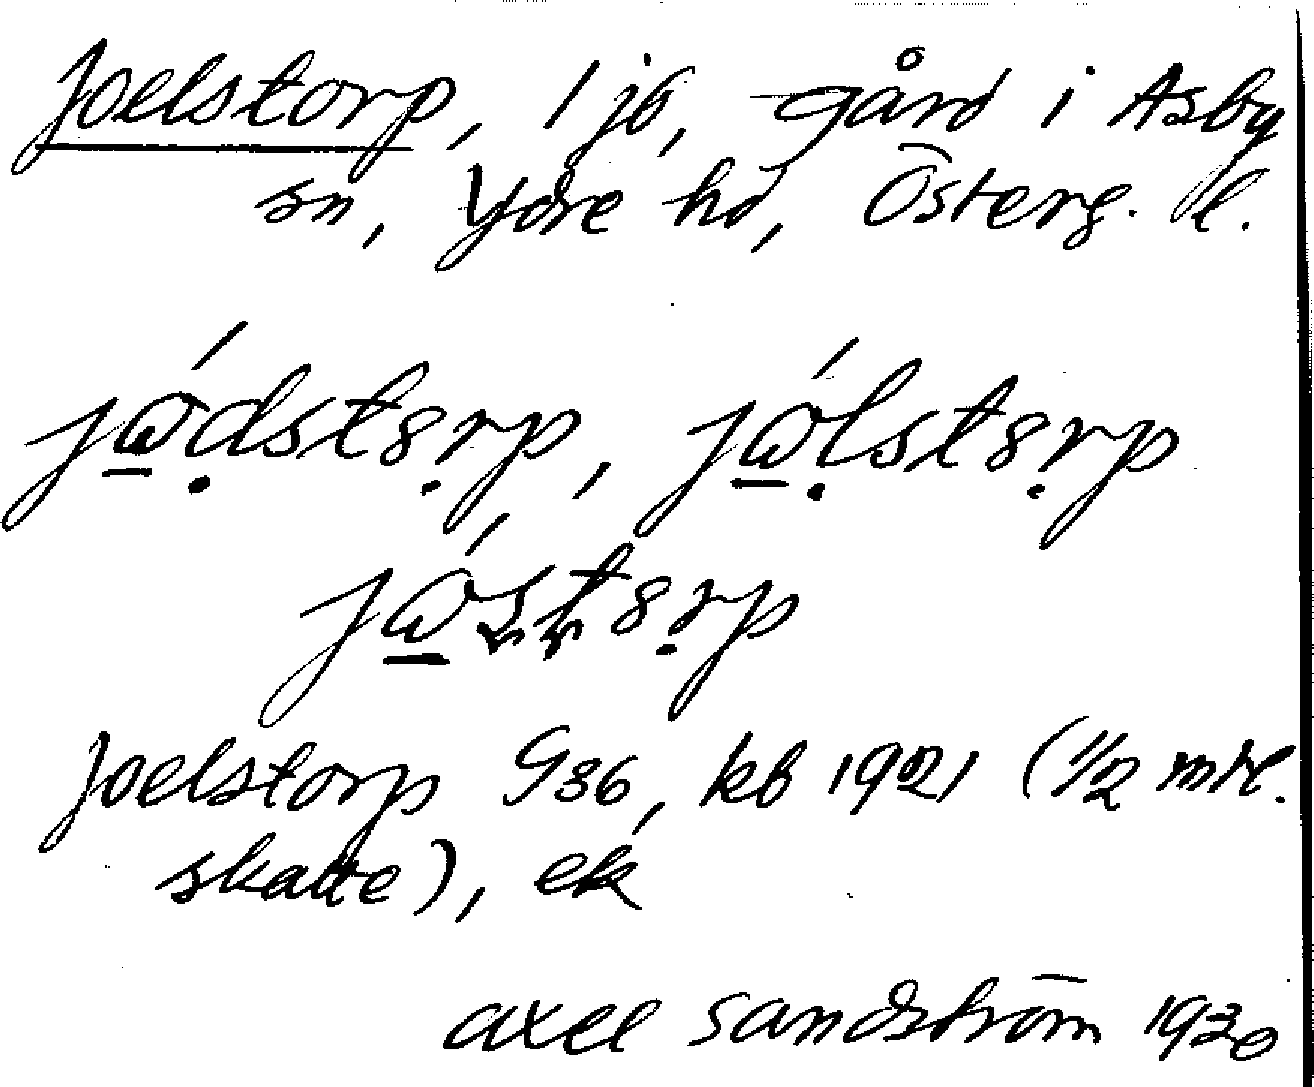 Joelstorp, 1 jb, gård i Asby
sn, Ydre hd, Österg. l.
jɷ̠́dstȣ̣rp, jɷ̠́lstȣ̣rp
jɷ̠́stȣ̣rp
Joelstorp G36, kb 1921 (1/2 mtl.
skatte), ek
Axel Sandström 1930